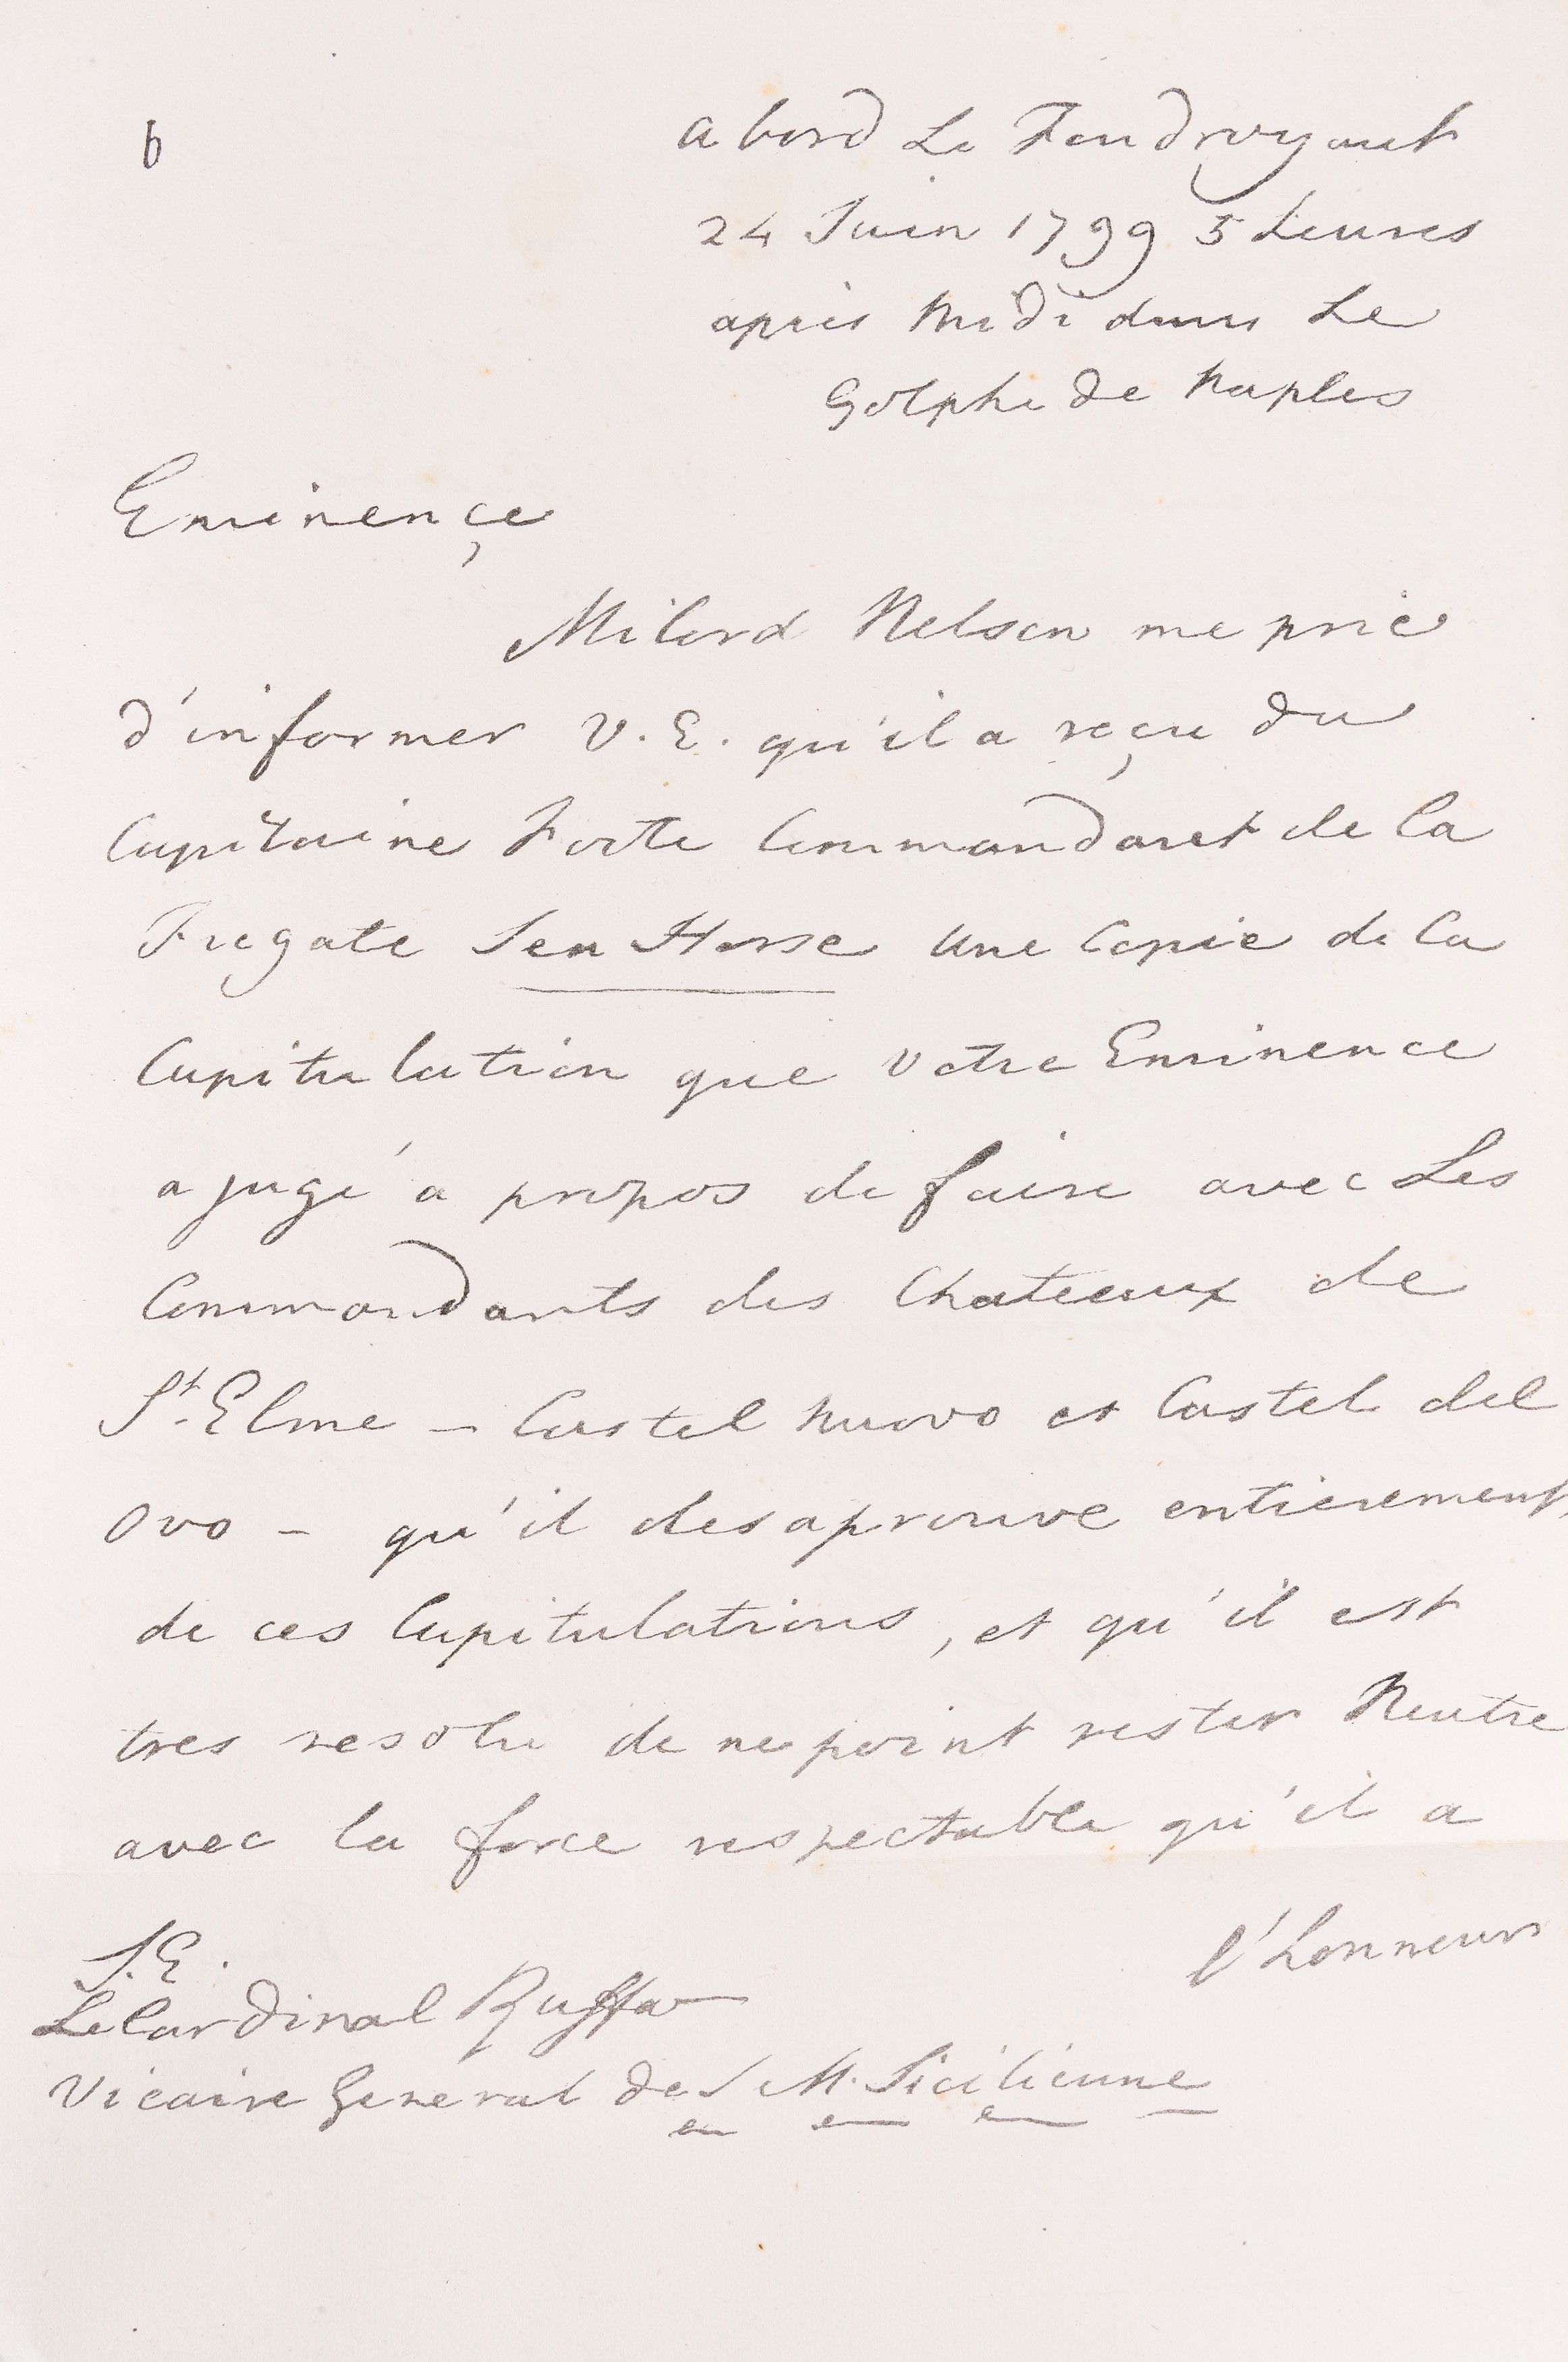 6
a bord Le Foudroyant
24 Juin 1799 5 heures
après Midi dans Le
Golphe de Naples
Eminençe
Milord Nelson me prie
d'informer V.E. qu'il a reçu du
Capitaine Foote Commandant de la
Fregate Sea Horse une Copie de la
Capitulation que Votre Eminence
a jugé a propos de faire avec Les
Commandants des Chateaux de
St. Elme - Castel Nuovo et Castel del
Ovo - qu'il desaprouve entierement
de ces Capitulations, et qu'il est
tres resolu de ne point rester Neutre
avec la force respectable qu'il a
l'honneur
S.E.
Le Cardinal Ruffo
Vicaire Général de S M. Sicilienne